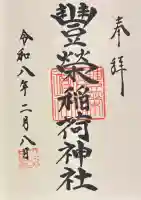 奉拝
豐榮稲荷神社
令和八年二月八日